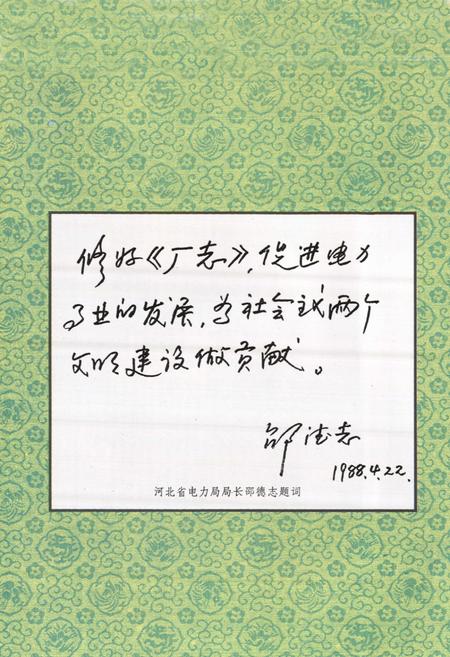 修好《厂志》，促进电力
事业的发展，为社会主义两个
文明建设做贡献。
邵德志
1988.4.22.
河北省电力局局长邵德志题词